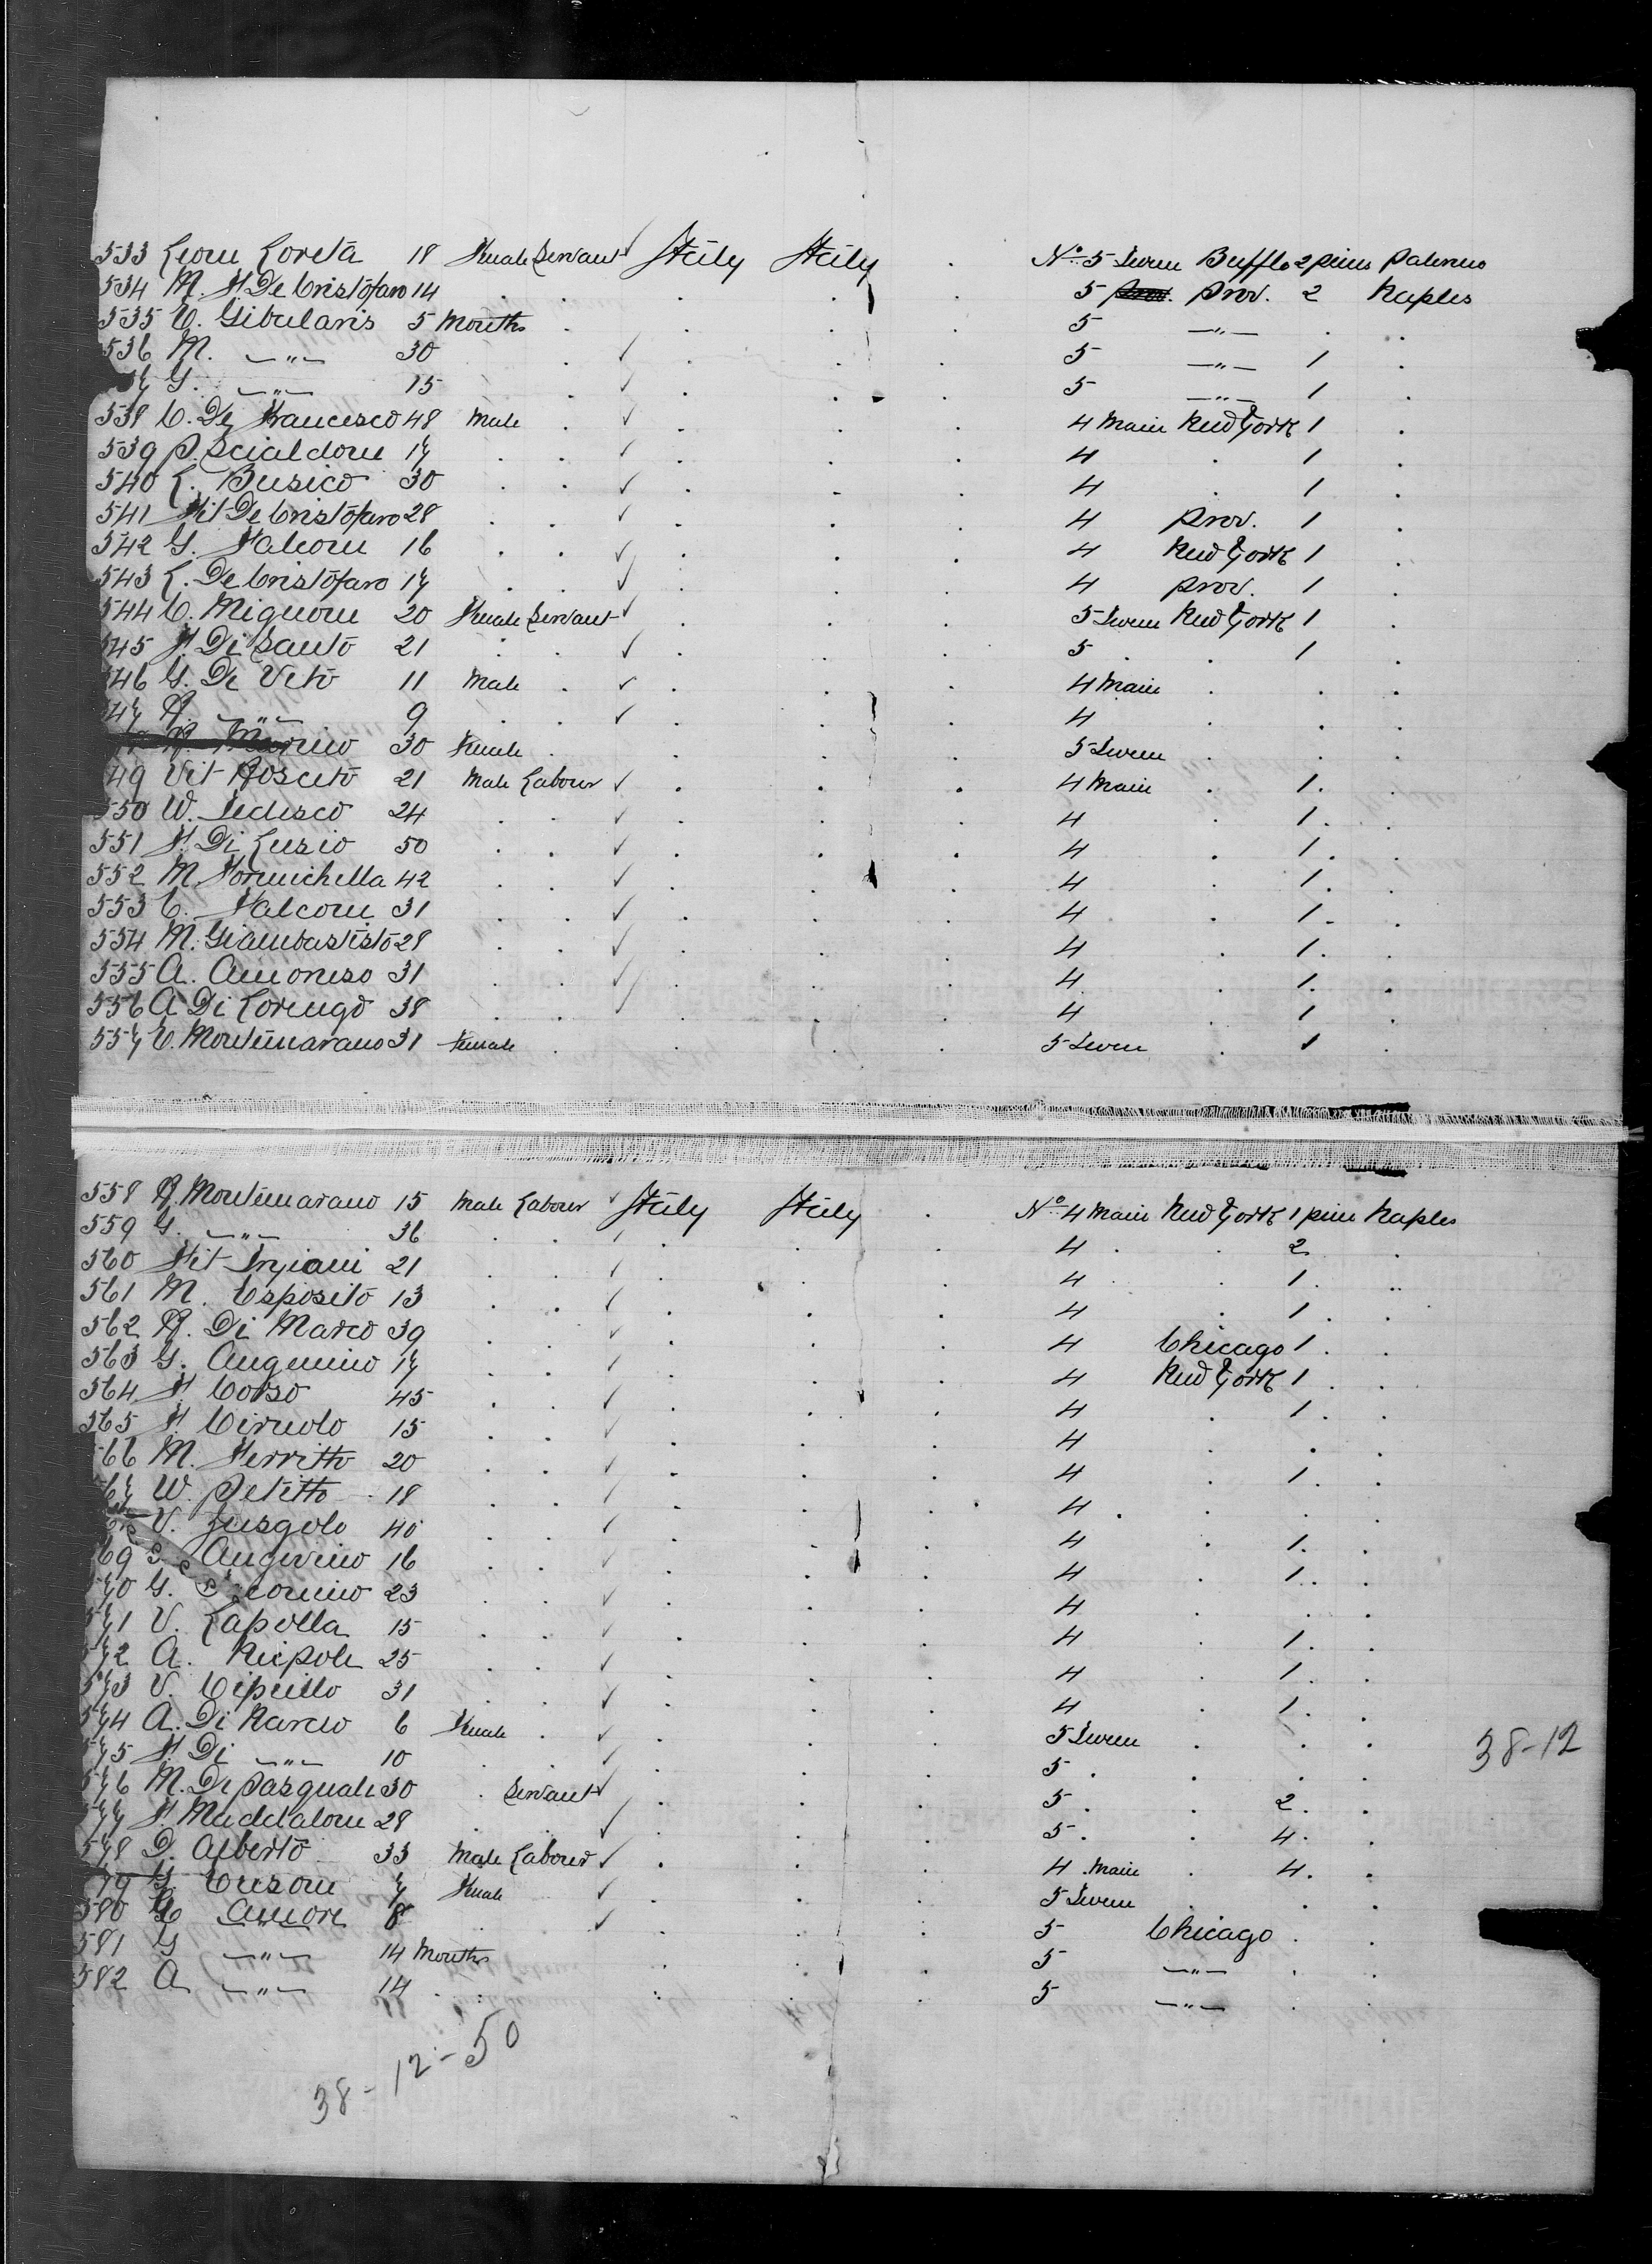 533 Leone Loreta 18 Female Servant ✓ Italy Italy . No. 5 Seven Bufflo 2 piecs Palermo
534 M. F. De Cristofaro 14 . . . . . 5 Prov. 2 Naples
535 C. Gibularis 5 Months . . . . 5 —"— . .
536 M. —"— 30 . . ✓ . . . 5 —"— 1 .
G. —"— 15 . . ✓ . . . 5 —"— 1 .
538 C. De Francesco 48 Male . ✓ . . . 4 Main New York 1 .
539 P. Scialdone 17 . . ✓ . . . 4 . 1 .
540 L. Busico 30 . . ✓ . . . 4 . 1 .
541 Fit De Cristofaro 28 . . ✓ . . . 4 Prov. 1 .
542 G. Falcone 16 . . ✓ . . . 4 New York 1 .
543 L. De Cristofaro 17 . . ✓ . . . 4 Prov. 1 .
544 C. Mignone 20 Female Servant ✓ . . . 5 Seven New York 1 .
545 F. Di Santo 21 . . ✓ . . . 5 . . 1 .
546 G. De Veto 11 Male . ✓ . . . 4 Main . . .
47 R. —"— 9 . . ✓ . . . 4 . . .
30 Female . . . . 5 Seven . . .
49 Vit Rosceto 21 Male Labour ✓ . . . 4 Main . 1 . .
550 W. Tedesco 24 . . ✓ . . . 4 . 1 . .
551 F. Di Lusio 50 . . ✓ . . . 4 . 1 . .
552 M. Formichella 42 . . ✓ . . . 4 . 1 . .
553 C. Falcone 31 . . ✓ . . . 4 . 1 . .
554 M. Giambastisto 28 . . ✓ . . . 4 . 1 . .
555 A. Amoneso 31 . . ✓ . . . 4 . 1 . .
556 A Di Lorengo 38 . . ✓ . . . 4 . 1 .
557 C. Montemarano 31 Female . . . . 5 Seven . 1 .
558 R. Montemarano 15 Male Labour ✓ Italy Italy . No. 4 Main New York 1 piece Naples
559 G. —"— 36 . . ✓ . . . 4 . . 2 .
560 Fit 21 . . ✓ . . . 4 . . 1 . .
561 M. Esposito 13 . . ✓ . . . 4 . 1 . .
562 R. Di Marco 39 . . ✓ . . . 4 Chicago 1 . .
563 G. 17 . . ✓ . . . 4 New York 1 . .
564 F. Corso 45 . . ✓ . . . 4 . 1 . .
565 F. Ciruolo 15 . . ✓ . . . 4 . . .
66 M. Ferritto 20 . . ✓ . . . 4 . 1 . .
67 W. Petitto 18 . . ✓ . . . 4 . . . .
V. Zusgolo 40 . . ✓ . . . 4 . 1 . .
69 16 . . ✓ . . . 4 . 1 . .
70 G. 23 . . ✓ . . . 4 . . .
571 V. Lapolla 15 . . ✓ . . . 4 . 1 . .
572 A. Neipole 25 . . ✓ . . . 4 . 1 . .
573 V. Cipullo 31 . . ✓ . . . 4 . 1 . .
574 A. Di Narcio 6 Female . ✓ . . . 5 Seven . . .
575 F. Di —"— 10 . . ✓ . . . 5 . . . .
576 M. De Pasquale 30 . Servant ✓ . . . 5 . . 2 . .
577 F. Maddalone 28 . . ✓ . . . 5 . . 4 . .
578 D. Alberto 33 Male Labour ✓ . . . 4 . Main . 4 . .
79 Cusone 7 Female ✓ . . . 5 Seven . . .
580 Amore 8 . ✓ . . . 5 Chicago . .
581 G —"— 14 Months . . . 5 —"— . .
582 A —"— 14 . . . . . 5 —"— . .
38-12
38-12-50